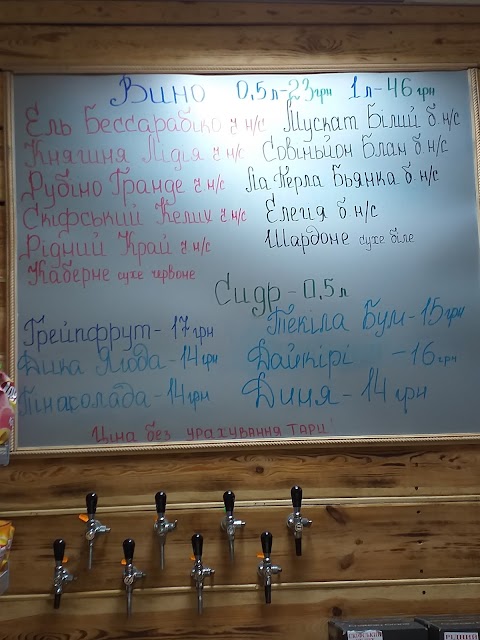 Вино 0,5л-23грн 1л-46грн
Ель Бессарабіко ч н/с
Княгиня Лідія ч н/с
Рубіно Гранде ч н/с
Скіфський Келих ч н/с
Рідний Край ч н/с
Каберне сухе червоне
Мускат Білий б н/с
Совіньйон Блан б н/с
Ла Перла Бьянка б н/с
Елегія б н/с
Шардоне сухе біле
Сидр - 0,5л
Грейпфрут - 17грн
Дика Ягода - 14грн
Пінаколада - 14грн
Текіла Бум - 15грн
Дайкірі - 16грн
Диня - 14грн
Ціна без урахування тари!